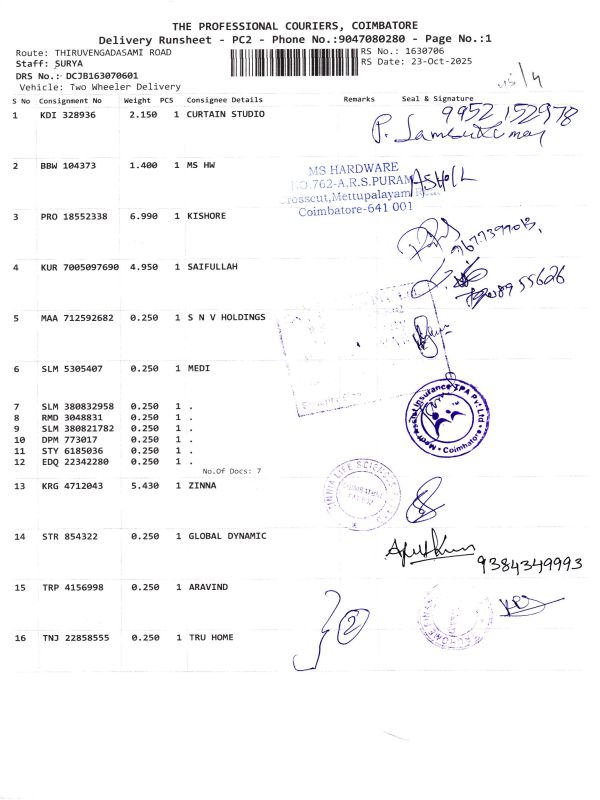 THE PROFESSIONAL COURIERS, COIMBATORE
Delivery Runsheet - PC2 - Phone No.:9047080280 - Page No.:1
Route: THIRUVENGADASAMI ROAD
RS No.: 1630706
Staff: SURYA
RS Date: 23-Oct-2025
DRS No.: DCJB163070601
Vehicle: Two Wheeler Delivery
S No Consignment No Weight PCS Consignee Details Remarks Seal & Signature
1 KDI 328936 2.150 1 CURTAIN STUDIO
9952 152978
P. Sambukumar
2 BBW 104373 1.400 1 MS HW
MS HARDWARE
NO.762-A,R.S.PURAM
Crosscut,Mettupalayam
Coimbatore-641 001
3 PRO 18552338 6.990 1 KISHORE
9677399013
4 KUR 7005097690 4.950 1 SAIFULLAH
5 MAA 712592682 0.250 1 S N V HOLDINGS
6 SLM 5305407 0.250 1 MEDI
Insurance TPA Pvt Ltd
Coimbatore
7 SLM 380832958 0.250 1 .
8 RMD 3048831 0.250 1 .
9 SLM 380821782 0.250 1 .
10 DPM 773017 0.250 1 .
11 STY 6185036 0.250 1 .
12 EDQ 22342280 0.250 1 .
No.Of Docs: 7
13 KRG 4712043 5.430 1 ZINNA
14 STR 854322 0.250 1 GLOBAL DYNAMIC
9384349993
15 TRP 4156998 0.250 1 ARAVIND
2
16 TNJ 22858555 0.250 1 TRU HOME